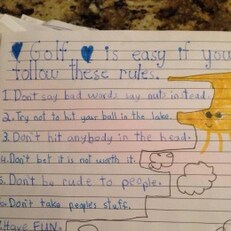 Golf is easy if you
follow these rules.
1. Don't say bad words say nuts instead.
2. Try not to hit your ball in the lake.
3. Don't hit anybody in the head.
4. Don't bet it is not worth it.
5. Don't be rude to people.
6. Don't take peoples stuff.
Have FUN.